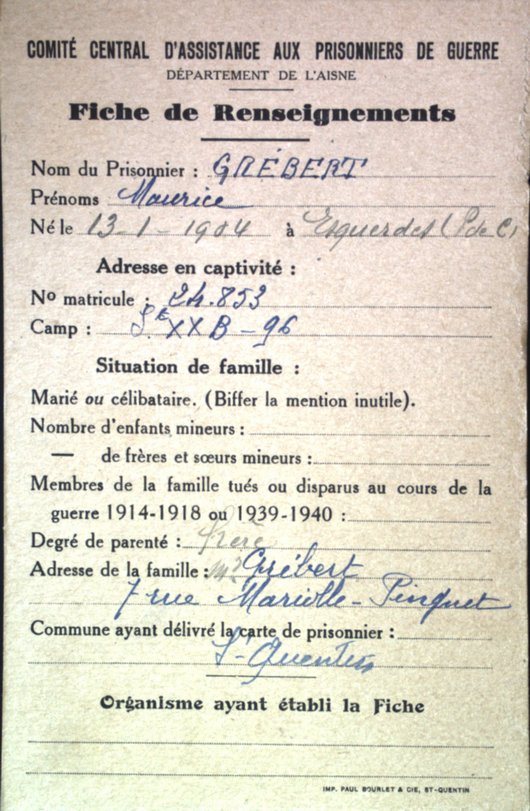 COMITÉ CENTRAL D'ASSISTANCE AUX PRISONNIERS DE GUERRE
DÉPARTEMENT DE L'AISNE
Fiche de Renseignements
Nom du Prisonnier : GRÉBERT
Prénoms Maurice
Né le 13-1-1904 à Esquerdes (P de C)
Adresse en captivité :
No matricule : 24.853
Camp : XX B - 96
Situation de famille :
Marié ou célibataire. (Biffer la mention inutile).
Nombre d'enfants mineurs :
— de frères et sœurs mineurs :
Membres de la famille tués ou disparus au cours de la
guerre 1914-1918 ou 1939-1940 :
Degré de parenté : frère
Adresse de la famille : Grébert
7 rue Mariolle-Pinguet
Commune ayant délivré la carte de prisonnier :
St-Quentin
Organisme ayant établi la Fiche
IMP. PAUL BOURLET & CIE, ST-QUENTIN